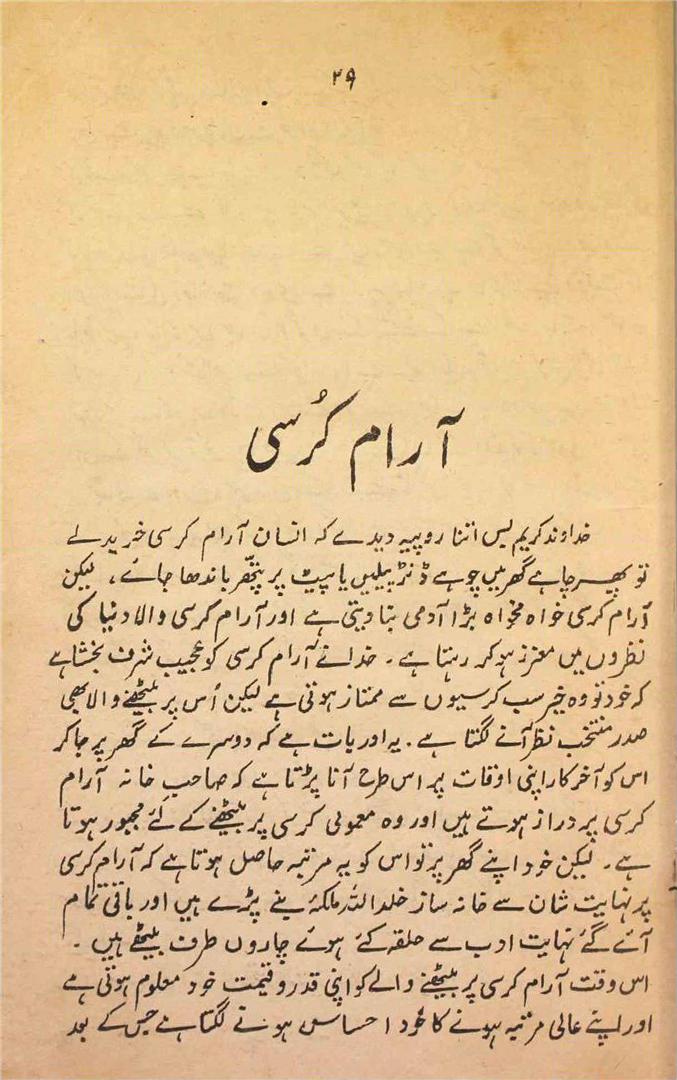 ۲۹
آرام کُرسی
خداوند کریم بس اتنا روپیہ دیدے کہ انسان آرام کرسی خریدلے
تو پھر چاہے گھر میں چوہے ڈنڑ پیلیں یا پیٹ پر پتھر باندھا جائے، لیکن
آرام کرسی خواہ مخواہ بڑا آدمی بنا دیتی ہے اور آرام کرسی والا دنیا کی
نظروں میں معزز ہو کر رہتا ہے۔ خدا نے آرام کرسی کو عجیب شرف بخشا ہے
کہ خود تو وہ خیر سب کرسیوں سے ممتاز ہوتی ہے لیکن اُس پر بیٹھنے والا بھی
صدر منتخب نظر آنے لگتا ہے۔ یہ اور بات ہے کہ دوسرے کے گھر پر جا کر
اس کو آخر کار اپنی اوقات پر اس طرح آنا پڑتا ہے کہ صاحبِ خانہ آرام
کرسی پر دراز ہوتے ہیں اور وہ معمولی کرسی پر بیٹھنے کے لئے مجبور ہوتا
ہے۔ لیکن خود اپنے گھر پر تو اس کو یہ مرتبہ حاصل ہوتا ہے کہ آرام کرسی
پر نہایت شان سے خانہ ساز خلد اللہ ملکہٗ بنے پڑے ہیں اور باقی تمام
آئے گئے نہایت ادب سے حلقہ کئے ہوئے چاروں طرف بیٹھے ہیں۔
اس وقت آرام کرسی پر بیٹھنے والے کو اپنی قدر و قیمت خود معلوم ہوتی ہے
اور اپنے عالی مرتبہ ہونے کا خود احساس ہونے لگتا ہے جس کے بعد